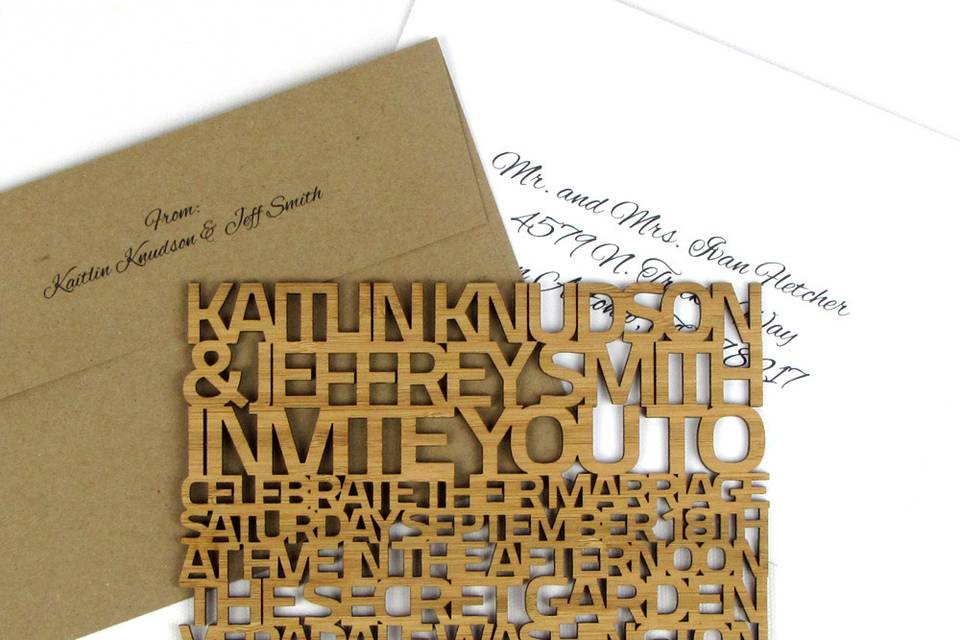 From:
Kaitlin Knudson & Jeff Smith
Mr. and Mrs. Ivan Fletcher
4579 N. Way
78217
KAITLIN KNUDSON
& JEFFREY SMITH
INVITE YOU TO
CELEBRATE THEIR MARRIAGE
SATURDAY SEPTEMBER 18TH
AT IN THE AFTERNOON
THE SECRET GARDEN
VERADALE WASHINGTON